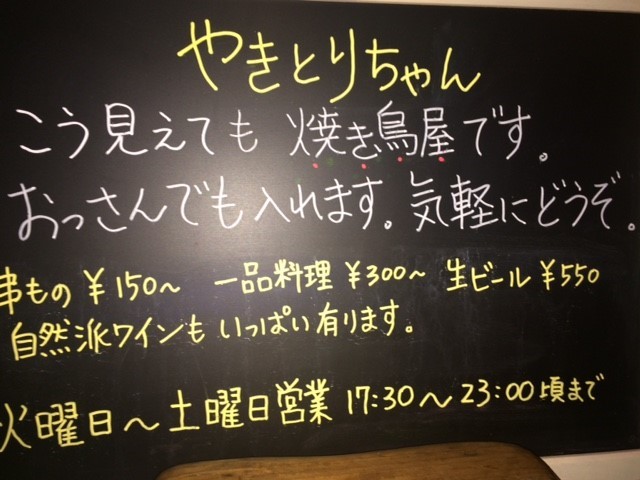 やきとりちゃん
こう見えても 焼き鳥屋です。
おっさんでも入れます。気軽にどうぞ。
串もの ¥150~ 一品料理 ¥300~ 生ビール ¥550
自然派ワインも いっぱい有ります。
火曜日~土曜日営業 17:30~23:00頃まで